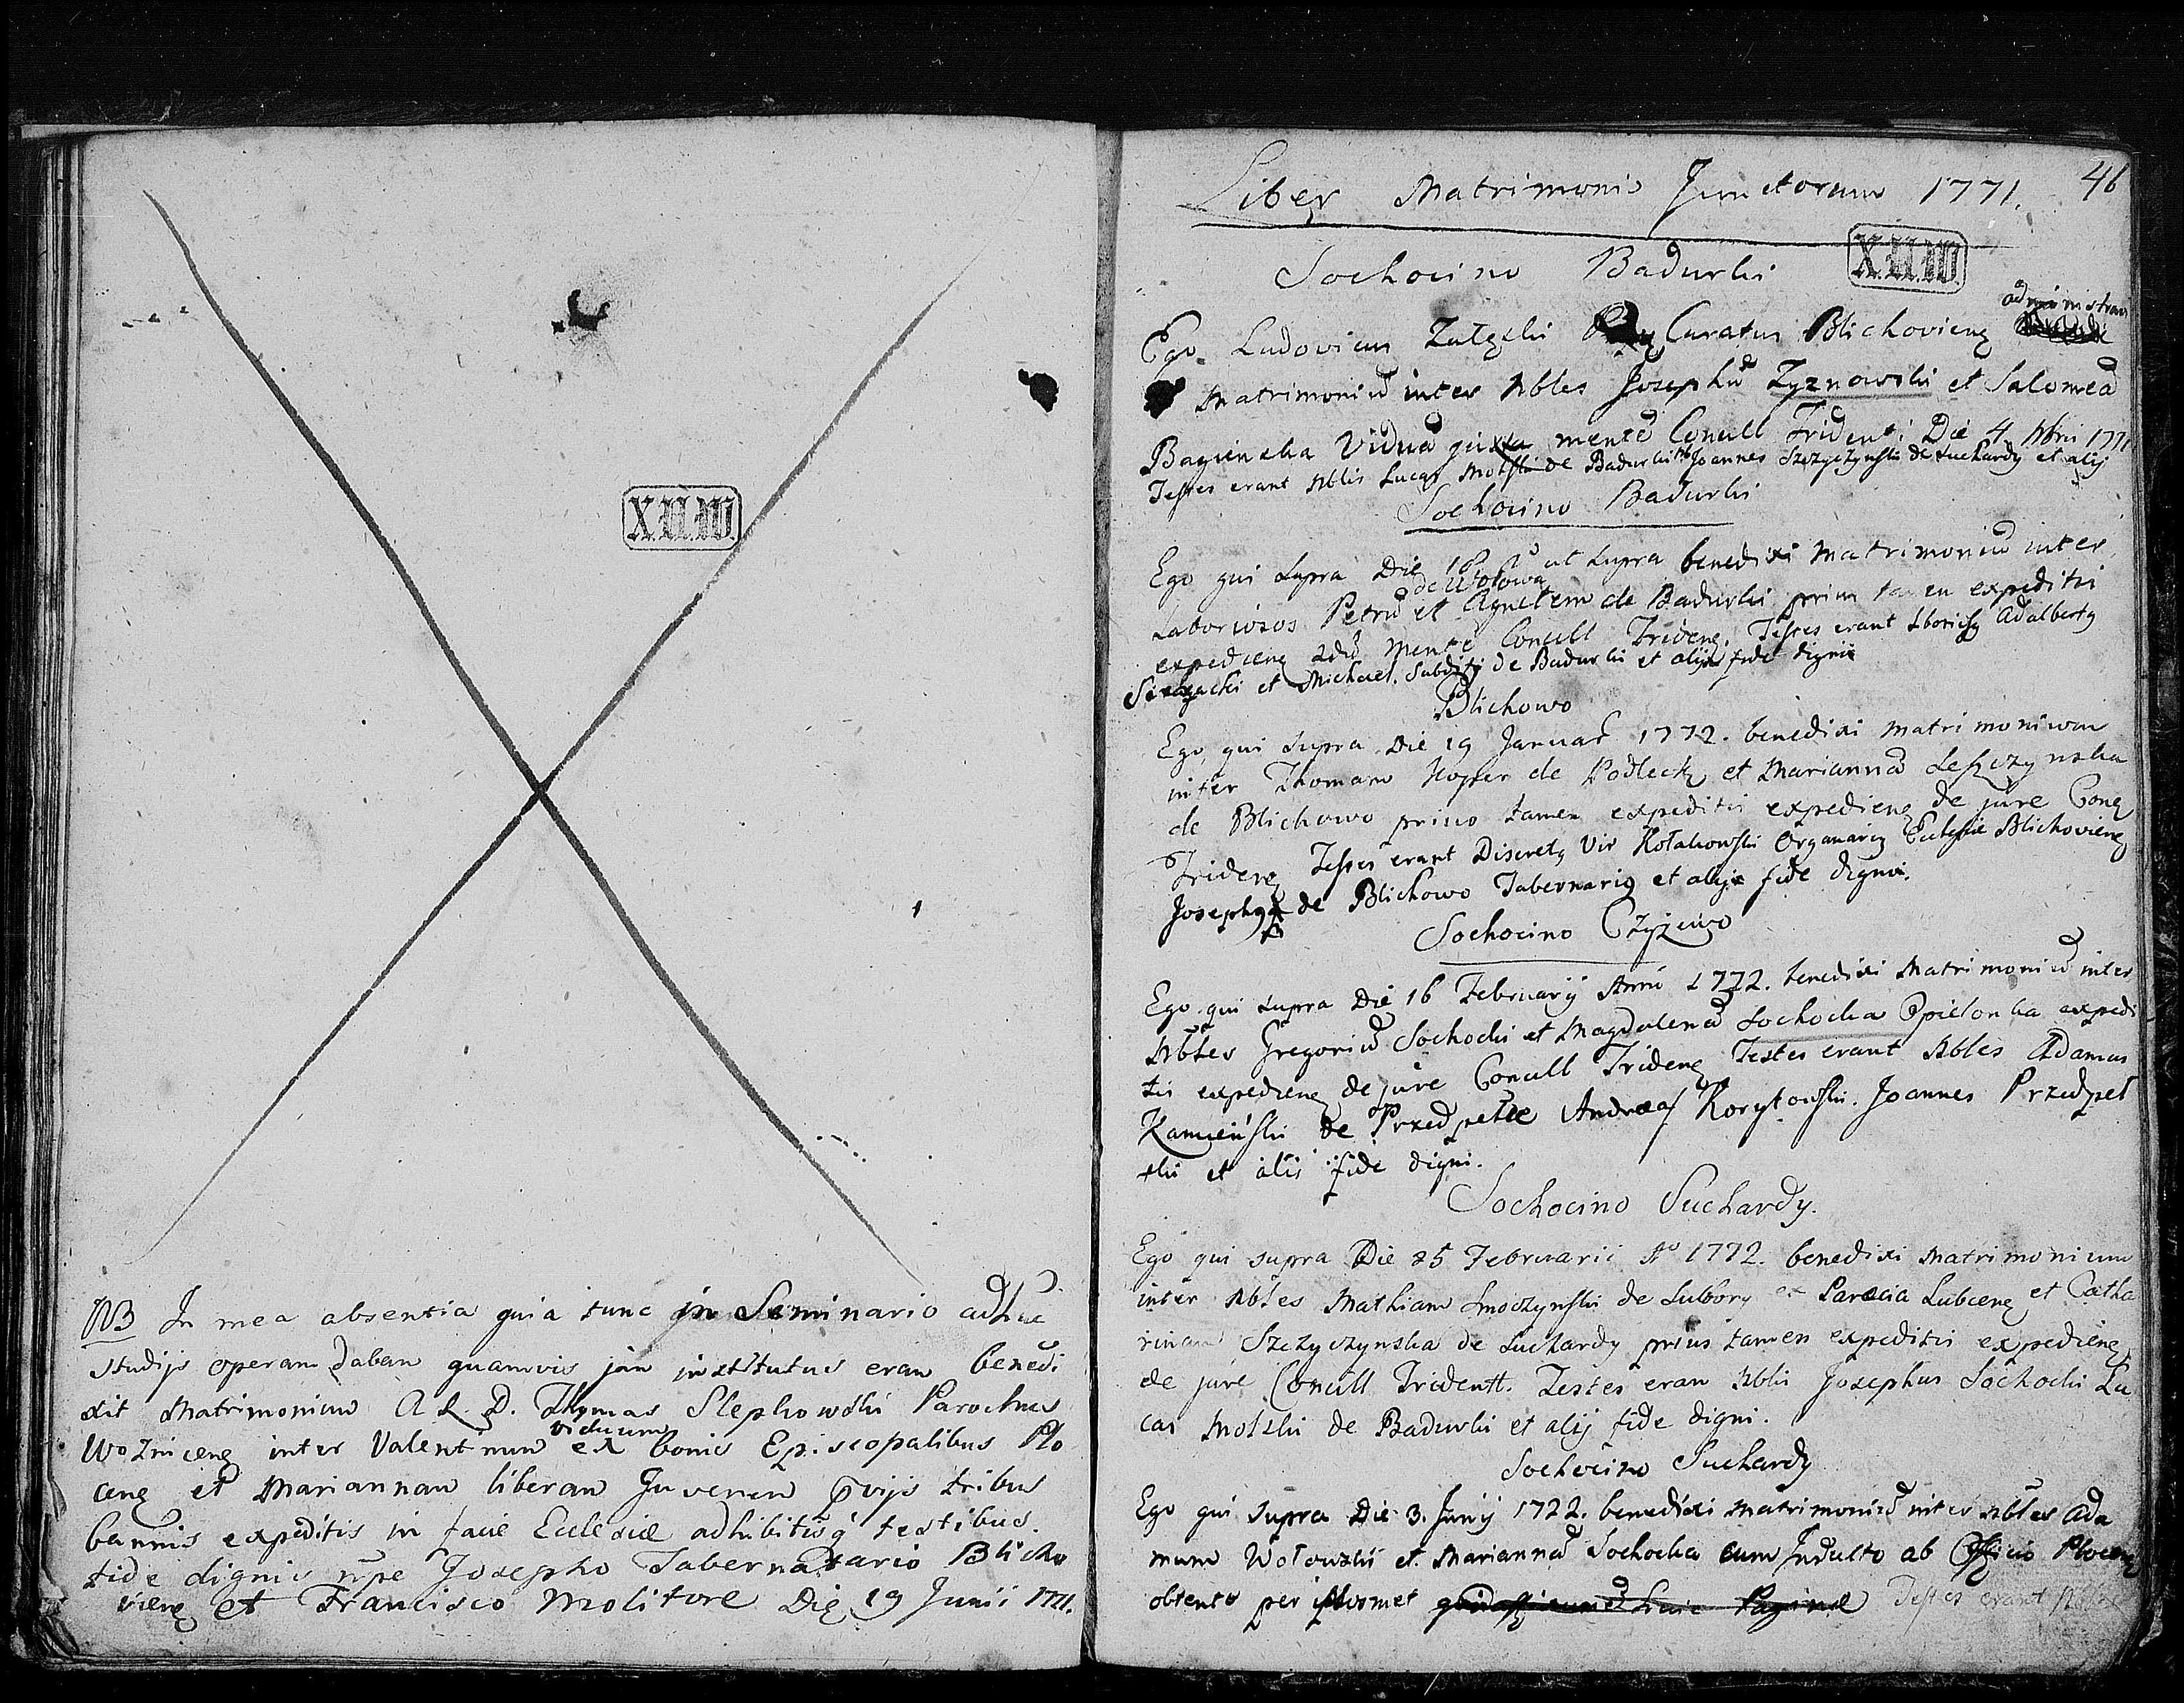 X.II.W.
NB In mea absentia quia tunc in Seminario adhuc
studijs operam daban quamvis jam institutus eram benedi
xit Matrimonium A. R. D. Thomas Slephowski Parochus
Woznicens inter Valentinum viduum ex bonis Episcopalibus Plo
cens et Mariannam liberam Juvenem pvijs tribus
bannis expeditis in facie Ecclesiæ adhibitisq testibus
fide dignis nþe Josepho Tabernatario Blicho
viens et Francisco Molitore Die 19 Junii 1771.
Liber Matrimonio Junctorum 1771. 46
Sochocino Badurki X.II.W.
Ego Ludovicus Zalęski Curatus Blichoviens administravi
Matrimoniu inter Nbles Josephu Zyznowski et Salomea
Bagienska Vidua juxta mente Concill Tridenti Die 4 Nbris 1771
Testes erant Nblis Lucas Molski de Badurki Nb Joannes Szczyczynski de Suchardy et alij
Sochocino Badurki
Ego qui supra Die 18 ut supra benedixi Matrimoniu inter
Laboriosos Petru de Wolowa et Agnetem de Badurki prius tamen expeditis
expediens ad mente Concill Tridens. Testes erant Adalberty
et Michael. Subditi de Badurki et alij fide digni
Blichowo
Ego, qui supra Die 19 Januar 1772. benedixi Matrimonium
inter Thomam Koper de Podleck et Marianna Leszczynska
de Blichowo prius tamen expeditis expediens de jure Conc
Tridens Testes erant Discrets Vir Kołakowski Organaris Eclesiæ Blichoviens
Josephus de Blichowo Tabernarius et alij fide digni.
Sochocino Czyżewo
Ego qui supra Die 16 Februarij Anni 1772. benedixi Matrimoniu inter
Nbles Gregoriu Sochocki et Magdalena Sochocka Opielonka expedi
tis expediens de jure Concill Tridens Testes erant Nbles Adamus
Kamieński de Przedpełce Andreas Korytowski. Joannes Przedpeł
ski et alis fide digni.
Sochocino Suchardy.
Ego qui supra Die 25 Februarii Ao 1772. benedixi Matrimonium
inter Nbles Mathiam Smoczynski de Lubory ex Paræcia Lubcens et Catha
rinam Szczyczynska de Suchardy prius tamen expeditis expediens
de jure Concill Tridentt. Testes eran Nblis Josephus Sochocki Lu
cas Molski de Badurki et alij fide digni.
Sochocino Suchardy
Ego qui supra Die 3. Junij 1772. benedixi Matrimoniu inter Nbles Ada
mum Wołowski et Marianna Sochocka cum Indulto ab Officio Plocens
obtento per ipsosmet huic Paginæ Testes erant Nbles